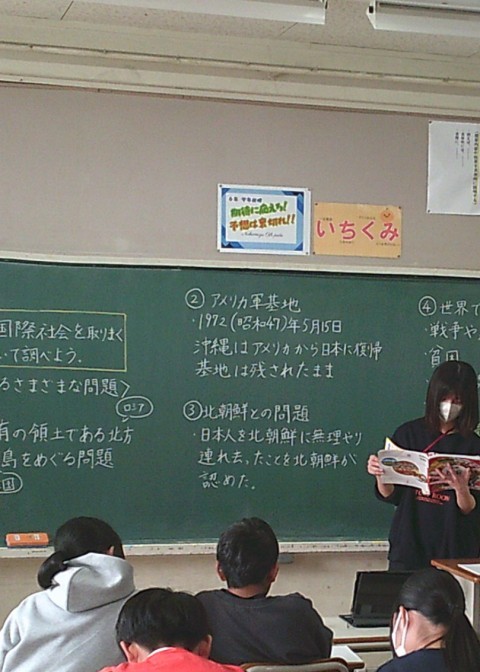 期待に応えろ!
予想は裏切れ!!
いちくみ
国際社会を取りまく
いて調べよう.
るさまざまな問題>
ロシア
有の領土である北方
島をめぐる問題
国
② アメリカ軍基地
・1972(昭和47)年5月15日
沖縄はアメリカから日本に復帰
基地は残されたまま
③北朝鮮との問題
・日本人を北朝鮮に無理やり
連れ去ったことを北朝鮮が
認めた。
④ 世界で
・戦争や
貧困